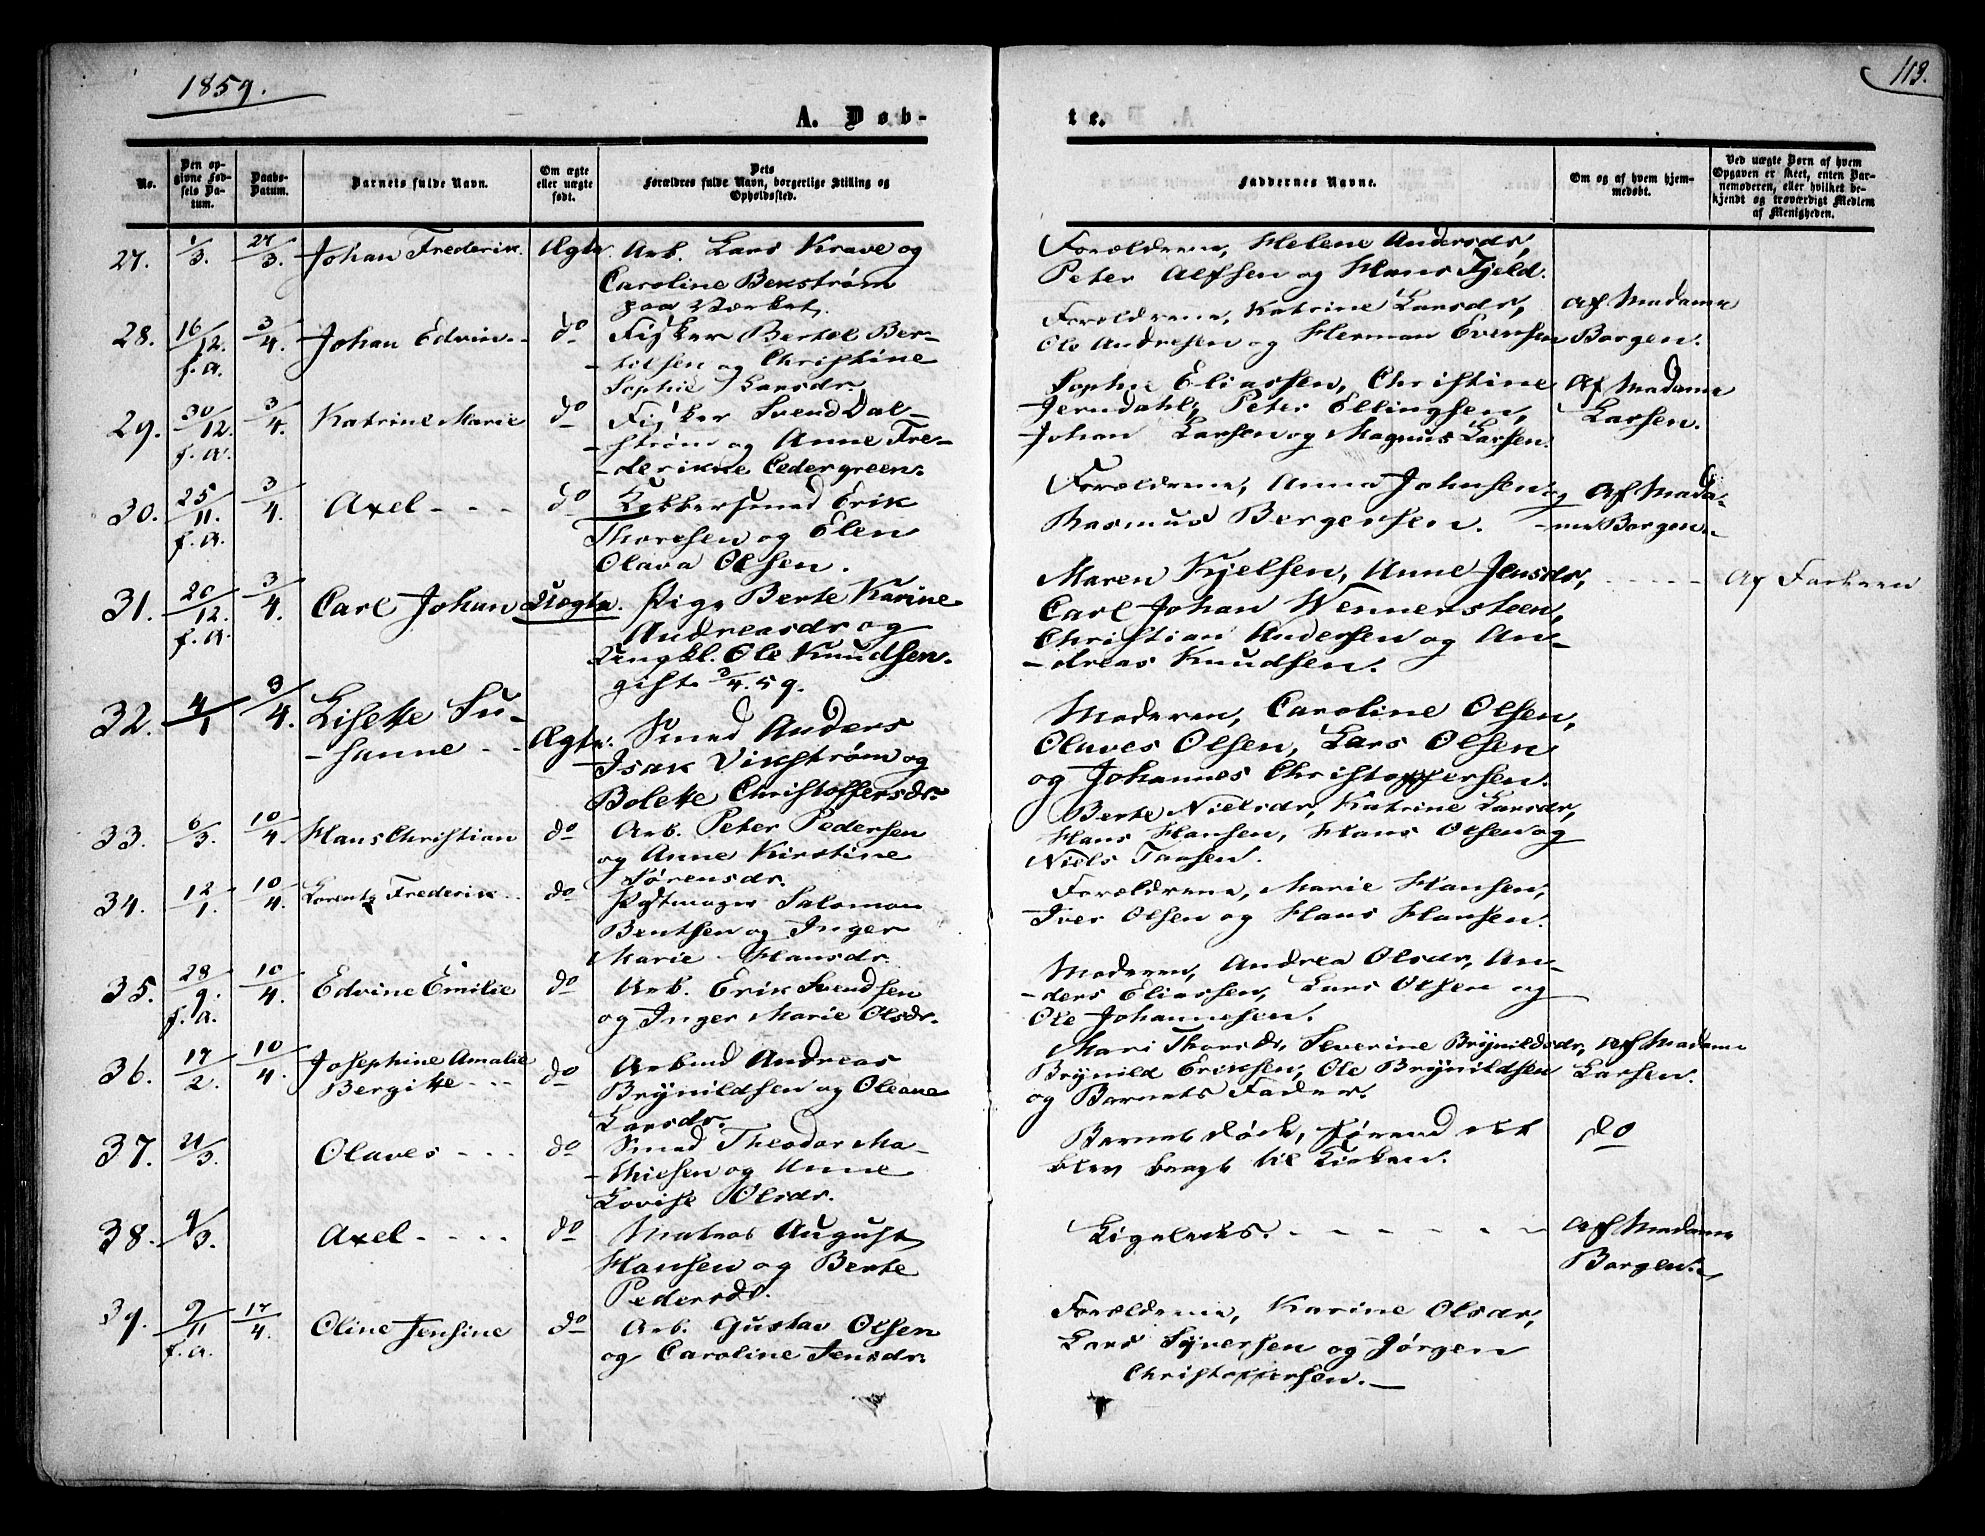 1859.
113.
A. Døb-
te.
No.
Den op-
givne Fød-
sels Da-
tum.
Daabs-
Datum.
Barnets fulde Navn.
Om ægte
eller uægte
født.
Dets
Forældres fulde Navn, borgerlige Stilling og
Opholdssted.
Faddernes Navne.
Om og af hvem hjem-
medøbt.
Ved uægte Børn af hvem
Opgaven er skeet, enten Bar-
nemoderen, eller hvilket be-
kjendt og troværdigt Medlem
af Menigheden.
27. 1/3. 27/3. Johan Frederik. Ægte. Arb. Lars Krave og
Caroline Bekstrøm
paa Værket.
Forældrene, Helene Andersdr,
Peter Alfsen og Hans Fjeld.
28. 16/12. f.a. 3/4. Johan Edvin. do Fisker Bertel Ber-
-tilsen og Christine
Sophie Larsdr.
Forældrene, Katrine Larsdr,
Ole Andresen og Herman Evensen
Af Madame
Borgen.
29. 30/12. f.a. 3/4. Katrine Marie do Fisker Svend Dal-
-strøm og Anne Fre-
-derikke Cedergreen.
Sophie Eliassen, Christine
Jerndahl, Peter Ellingsen,
Johan Larsen og Magnus Larsen.
Af Madame
Larsen.
30. 25/11. f.a. 3/4. Axel - - - do Kobbersmed Erik
Thoresen og Elen
Olava Olsen.
Forældrene, Anna Johnsen og
Rasmus Bergersen.
Af Mada-
-me Borgen.
31. 20/12. f.a. 3/4. Carl Johan Uægte. Pige Berte Karine
Andreasdr og
Ungkl. Ole Knudsen.
gift 3/4.59.
Maren Kjelsen, Anne Jensdr,
Carl Johan Wennersteen,
Christian Andersen og An-
-dreas Knudsen.
- - - - - Af Faderen
32. 4/1 3/4. Lisette Su-
-sanne - - Ægte. Smed Anders
Isak Vikstrøm og
Bolette Christoffersdr.
Moderen, Caroline Olsen,
Olaves Olsen, Lars Olsen
og Johannes Christoffersen.
33. 6/3. 10/4. Hans Christian do Arb. Peter Pedersen
og Anne Kirstine
Sørensdr.
Berte Nielsdr, Katrine Larsdr,
Hans Hansen, Hans Olsen og
Niels Taasen.
34. 12/1. 10/4. Lorents Frederik - - do Salomon
Bentsen og Inger
Marie Hansdr.
Forældrene, Marie Hansen,
Iver Olsen og Hans Hansen.
35. 28/9. f.a. 10/4. Edvine Emilie do Arb. Erik Svendsen
og Inger Marie Olsdr.
Moderen, Andrea Olsdr, An-
-ders Eliassen, Lars Olsen og
Ole Johannesen.
36. 17/2. 10/4. Josephine Amalie
Bergitte - - - do Arbmd Andreas
Brynildsen og Oleane
Larsdr.
Mari Thorsdr, Severine Brynildsdr,
Brynild Eriksen, Ole Brynildsen
og Barnets Fader.
Af Madame
Larsen.
37. 21/3. Olaves - - - do Smed Theodor Ma-
-thiesen og Anne
Lovise Olsdr.
Barnet døde, førend det
blev bragt til Kirken.
do
38. 9/3. Axel - - - - do Matros August
Hansen og Berte
Pedersdr.
Ligeledes. - - - - - -
Af Madame
Borgen.
39. 9/11 f.a. 17/4. Oline Jensine do Arb. Gustav Olsen
og Caroline Jensdr.
Forældrene, Karine Olsdr,
Lars Syversen og Jørgen
Christoffersen.